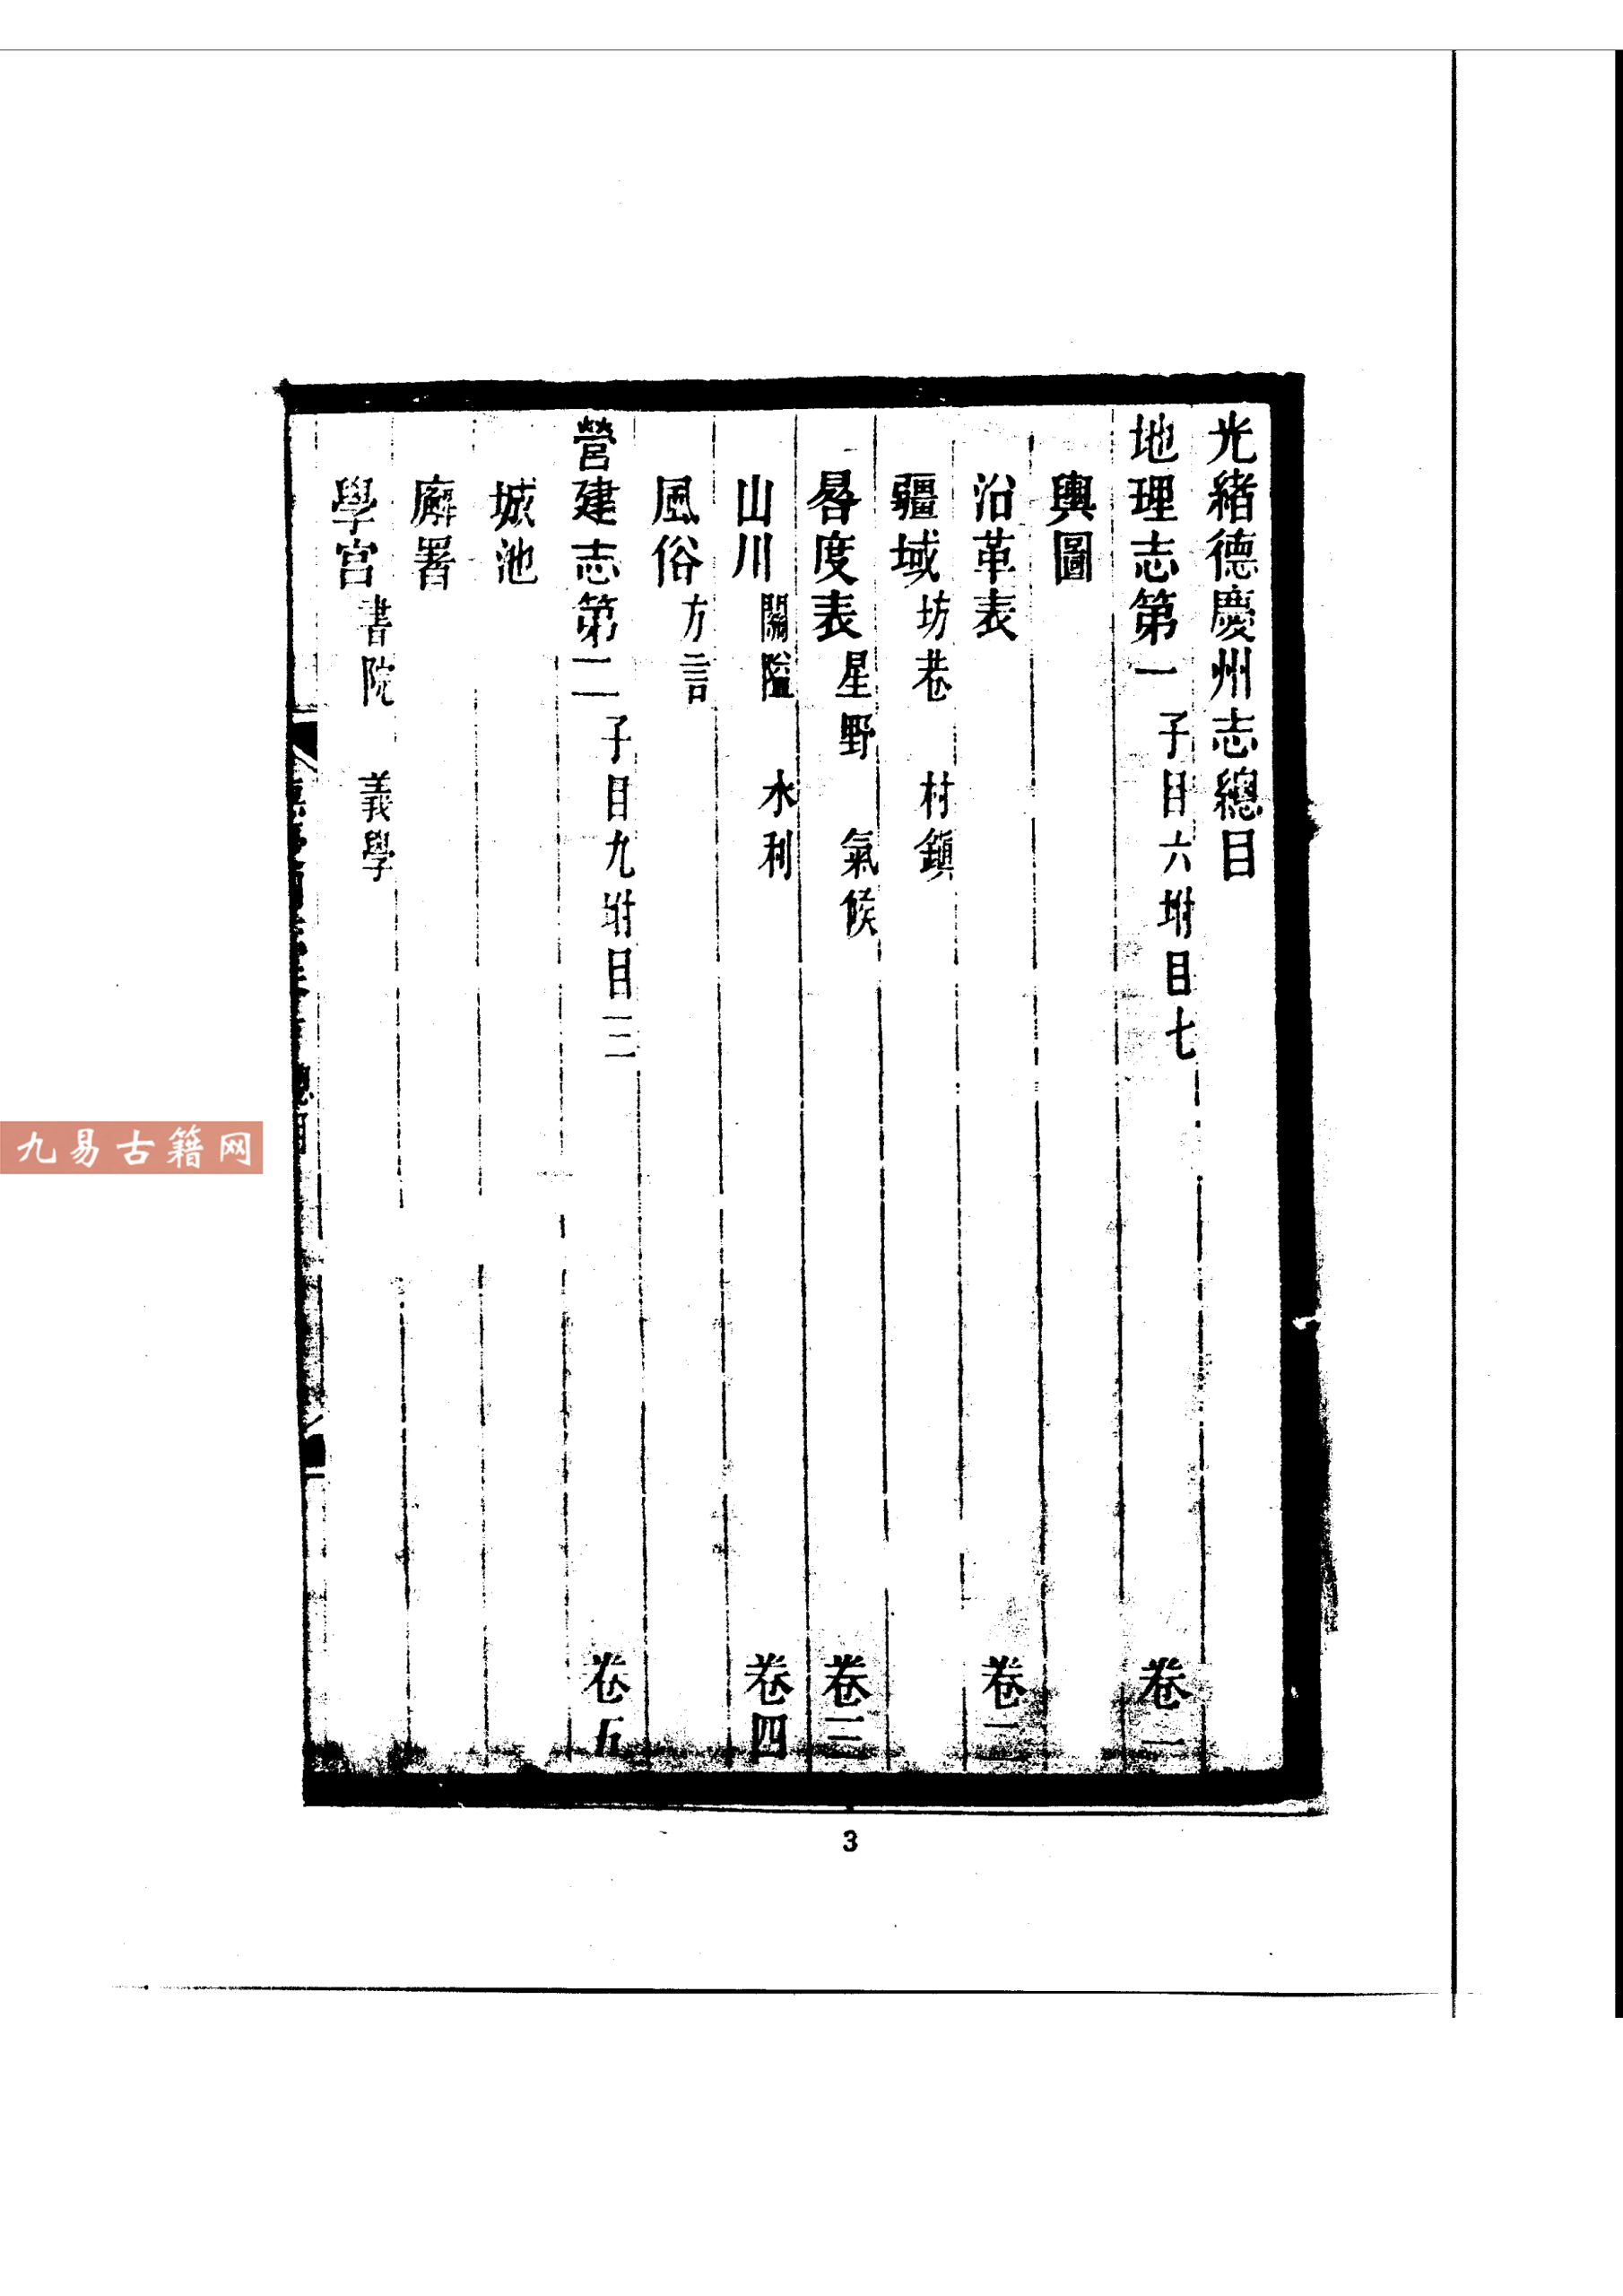 光緒德慶州志總目
地理志第一 子目六坿目七 卷一
輿圖
沿革表 卷二
疆域 坊巷 村鎮
晷度表 星野 氣候 卷三
山川 關隘 水利 卷四
風俗 方言
營建志第二 子目九坿目三 卷五
城池
廨署
學宮 書院 義學
3
九易古籍网